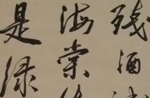 残酒
海棠
是绿